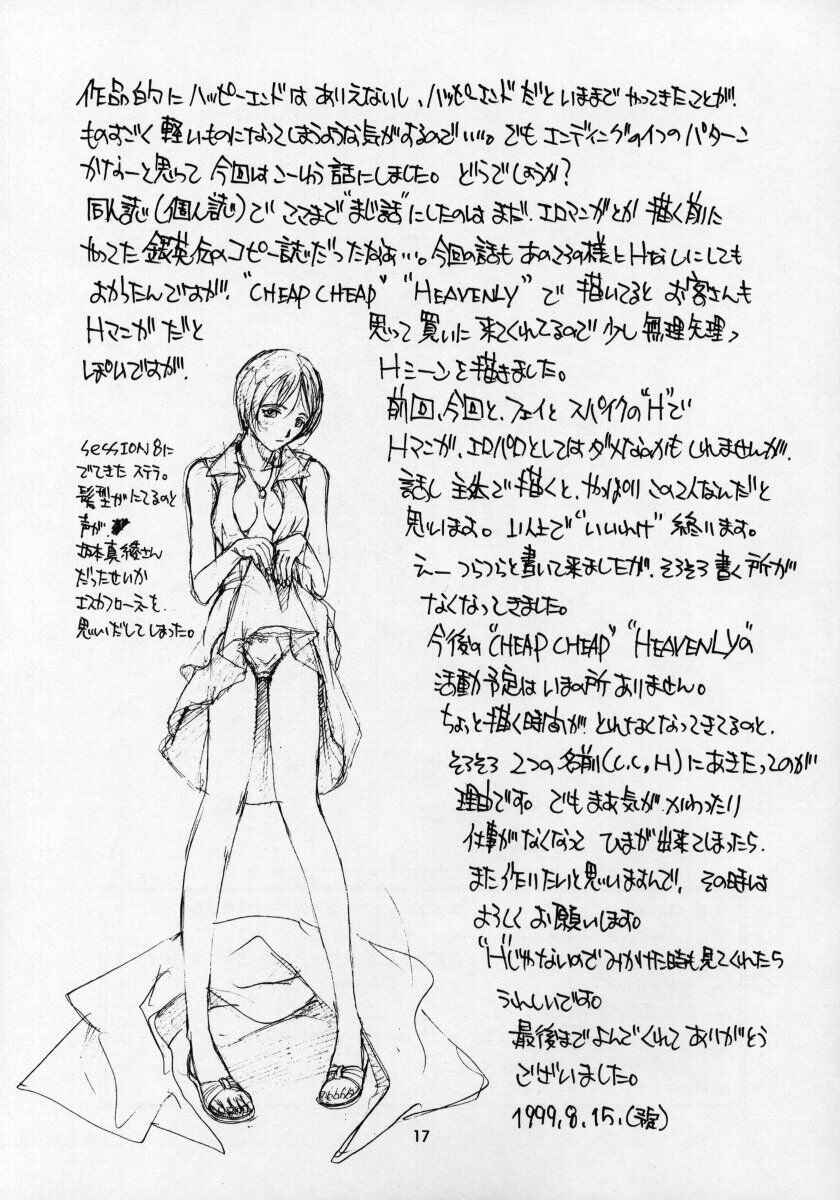 作品的にハッピーエンドはありえないし、ハッピーエンドだといままでやってきたことが、
ものすごく軽いものになってしまうような気がするので…。でもエンディングの1つのパターン
かなーと思って今回はこーいう話にしました。どうでしょうか?
同人誌(個人誌)でここまで"まじ話"にしたのはまだ、エロマンガとか描く前に
やってた銀英伝のコピー誌だったかなぁ…。今回の話もあのころの様にHなしにしても
よからたんですが、"CHEAP CHEAP" "HEAVENLY"で描いてるとお客さんも
Hマンガだと思って買いに来てくれてるので少し無理矢理っ
ぽいですが、Hシーンを描きました。
前回、今回と、フェイとスパイクの"H"で
Hマンガ、エロパロとしてはダメなのかもしれませんが、
話し主体で描くと、やっぱりこの2人なんだと
思います。以上で"いいわけ"終ります。
えーつらつらと書いて来ましたが、そろそろ書く所が
なくなってきました。
今後の"CHEAP CHEAP" "HEAVENLY"の
活動予定はいまの所ありません。
ちょっと描く時間がとれなくなってきてるのと、
そろそろ2つの名前(C.C,H)にあきたってのが
理由です。でもまあ気がかわったり
仕事がなくなってひまが出来てしまったら、
また作りたいと思いますんで、その時は
よろしくお願いします。
"H"じゃないのでみかけた時も見てくれたら
うれしいです。
最後までよんでくれてありがとう
ございました。
1999.8.15.
SESSION8に
でてきたステラ。
髪型がにてるのと
声が
坂本真綾さん
だったせいか
エスカフローネを
思いだしてしまった。
17